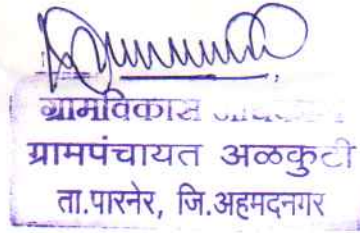 ग्रामविकास
ग्रामपंचायत अळकुटी
ता.पारनेर, जि.अहमदनगर